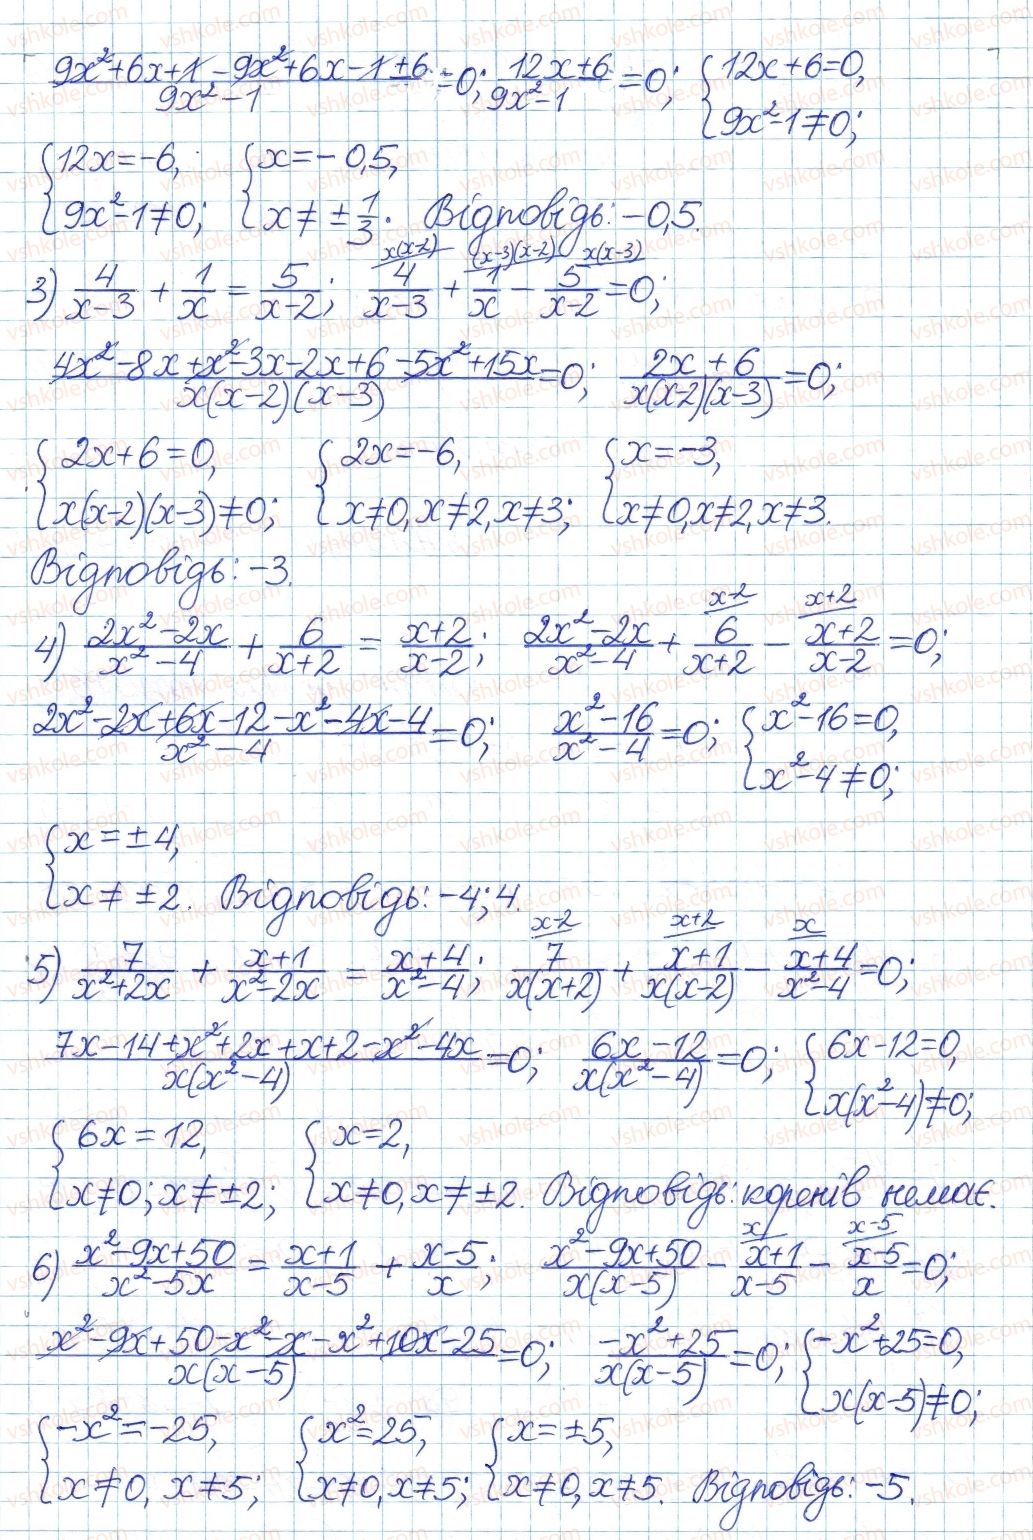 (9x²+6x+1-9x²+6x-1+6)/(9x²-1)=0; (12x+6)/(9x²-1)=0; {12x+6=0, 9x²-1≠0;
{12x=-6, 9x²-1≠0; {x=-0,5, x≠±1/3. Відповідь: -0,5.
3) 4/(x-3) + 1/x = 5/(x-2); 4/(x-3) (x(x-2)) + 1/x ((x-3)(x-2)) - 5/(x-2) (x(x-3)) =0;
(4x²-8x+x²-3x-2x+6-5x²+15x)/(x(x-2)(x-3))=0; (2x+6)/(x(x-2)(x-3))=0;
{2x+6=0, x(x-2)(x-3)≠0; {2x=-6, x≠0, x≠2, x≠3; {x=-3, x≠0, x≠2, x≠3.
Відповідь: -3.
4) (2x²-2x)/(x²-4) + 6/(x+2) = (x+2)/(x-2); (2x²-2x)/(x²-4) + 6/(x+2) (x-2) - (x+2)/(x-2) (x+2) =0;
(2x²-2x+6x-12-x²-4x-4)/(x²-4)=0; (x²-16)/(x²-4)=0; {x²-16=0, x²-4≠0;
{x=±4, x≠±2. Відповідь: -4; 4.
5) 7/(x²+2x) + (x+1)/(x²-2x) = (x+4)/(x²-4); 7/(x(x+2)) (x-2) + (x+1)/(x(x-2)) (x+2) - (x+4)/(x²-4) (x) =0;
(7x-14+x²+2x+x+2-x²-4x)/(x(x²-4))=0; (6x-12)/(x(x²-4))=0; {6x-12=0, x(x²-4)≠0;
{6x=12, x≠0; x≠±2; {x=2, x≠0, x≠±2. Відповідь: коренів немає.
6) (x²-9x+50)/(x²-5x) = (x+1)/(x-5) + (x-5)/x; (x²-9x+50)/(x(x-5)) - (x+1)/(x-5) (x) - (x-5)/x (x-5) =0;
(x²-9x+50-x²-x-x²+10x-25)/(x(x-5))=0; (-x²+25)/(x(x-5))=0; {-x²+25=0, x(x-5)≠0;
{-x²=-25, x≠0, x≠5; {x²=25, x≠0, x≠5; {x=±5, x≠0, x≠5. Відповідь: -5.